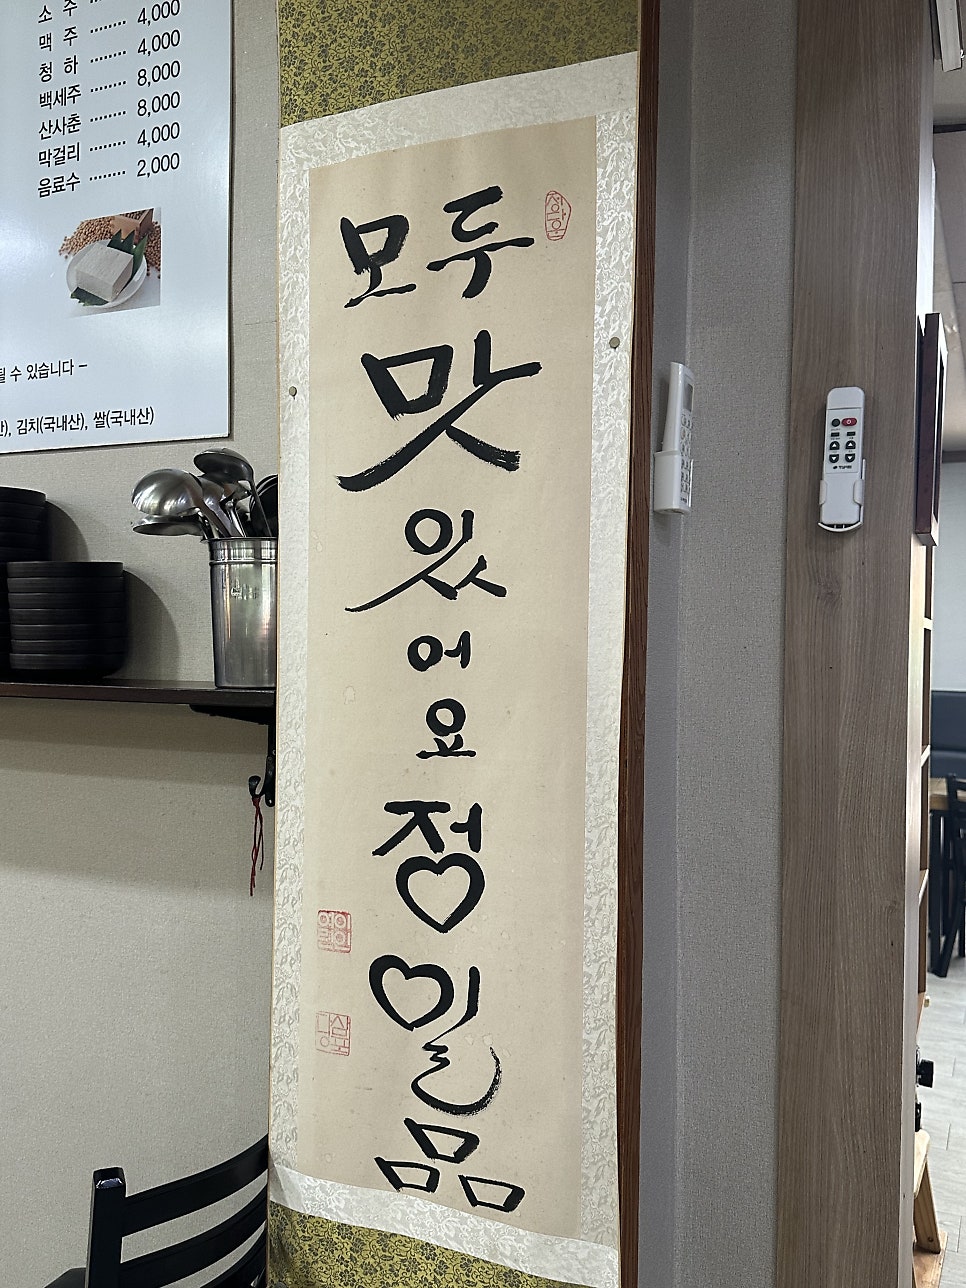 소 주 ········
맥 주 ········ 4,000
청 하 ········ 4,000
백세주 ········ 8,000
산사춘 ········ 8,000
막걸리 ········ 4,000
음료수 ········ 2,000
수 있습니다 –
김치(국내산), 쌀(국내산)
모두
맛
있
어
요
정
일
품